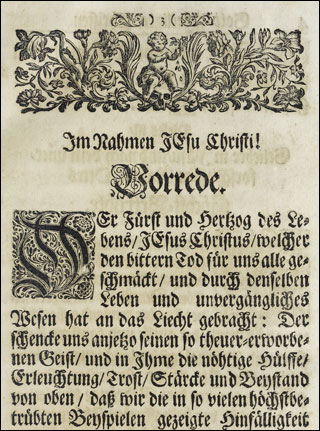 ) 3 (
Im Nahmen JEsu Christi!
Vorrede.
DEr Fürst und Hertzog des Le-
bens/JEsus Christus/welcher
den bittern Tod für uns alle ge-
schmäckt/ und durch denselben
Leben und unvergängliches
Wesen hat an das Liecht gebracht: Der
schencke uns anietzo seinen so theuer-erworbe-
nen Geist/ und in Ihme die nöhtige Hülffe/
Erleuchtung/ Trost/ Stärcke und Beystand
von oben/ daß wir die in so vielen höchstbe-
trübten Beyspielen gezeigte Hinfälligkeit